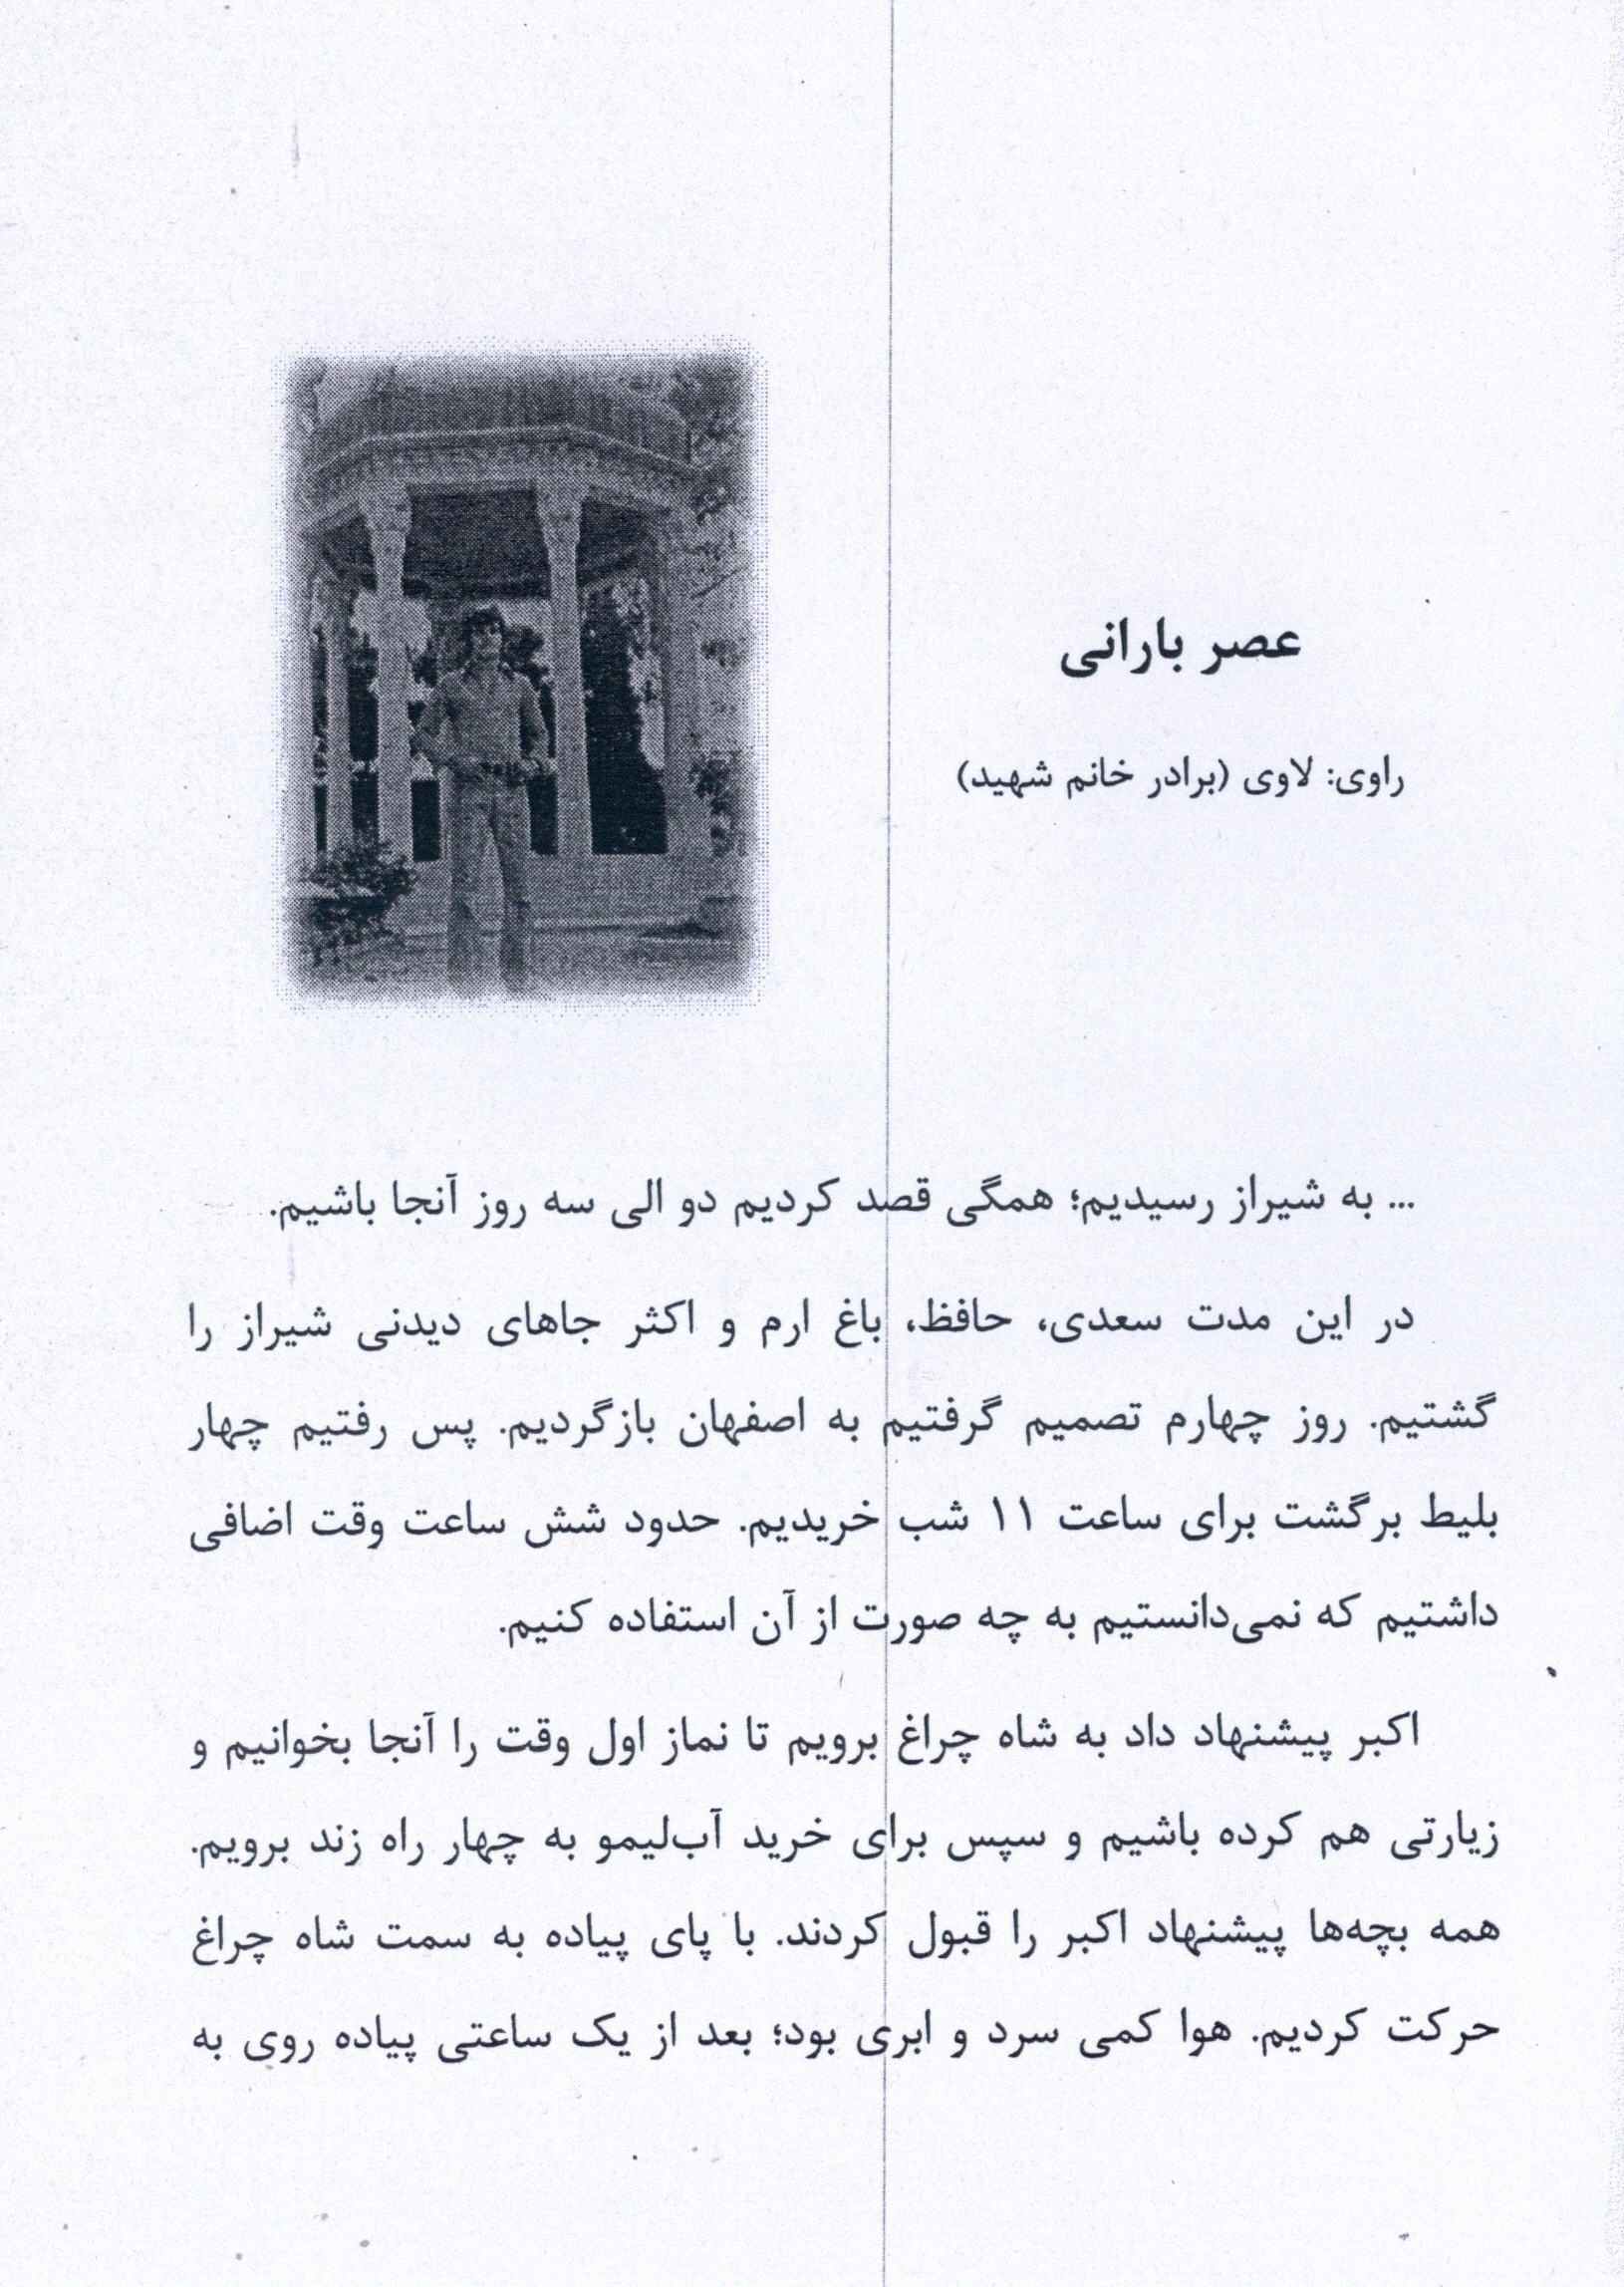 عصر بارانی
راوی: لاوی (برادر خانم شهید)
... به شیراز رسیدیم؛ همگی قصد کردیم دو الی سه روز آنجا باشیم.
در این مدت سعدی، حافظ، باغ ارم و اکثر جاهای دیدنی شیراز را
گشتیم. روز چهارم تصمیم گرفتیم به اصفهان بازگردیم. پس رفتیم چهار
بلیط برگشت برای ساعت ۱۱ شب خریدیم. حدود شش ساعت وقت اضافی
داشتیم که نمی‌دانستیم به چه صورت از آن استفاده کنیم.
اکبر پیشنهاد داد به شاه چراغ برویم تا نماز اول وقت را آنجا بخوانیم و
زیارتی هم کرده باشیم و سپس برای خرید آب‌لیمو به چهار راه زند برویم.
همه بچه‌ها پیشنهاد اکبر را قبول کردند. با پای پیاده به سمت شاه چراغ
حرکت کردیم. هوا کمی سرد و ابری بود؛ بعد از یک ساعتی پیاده روی به